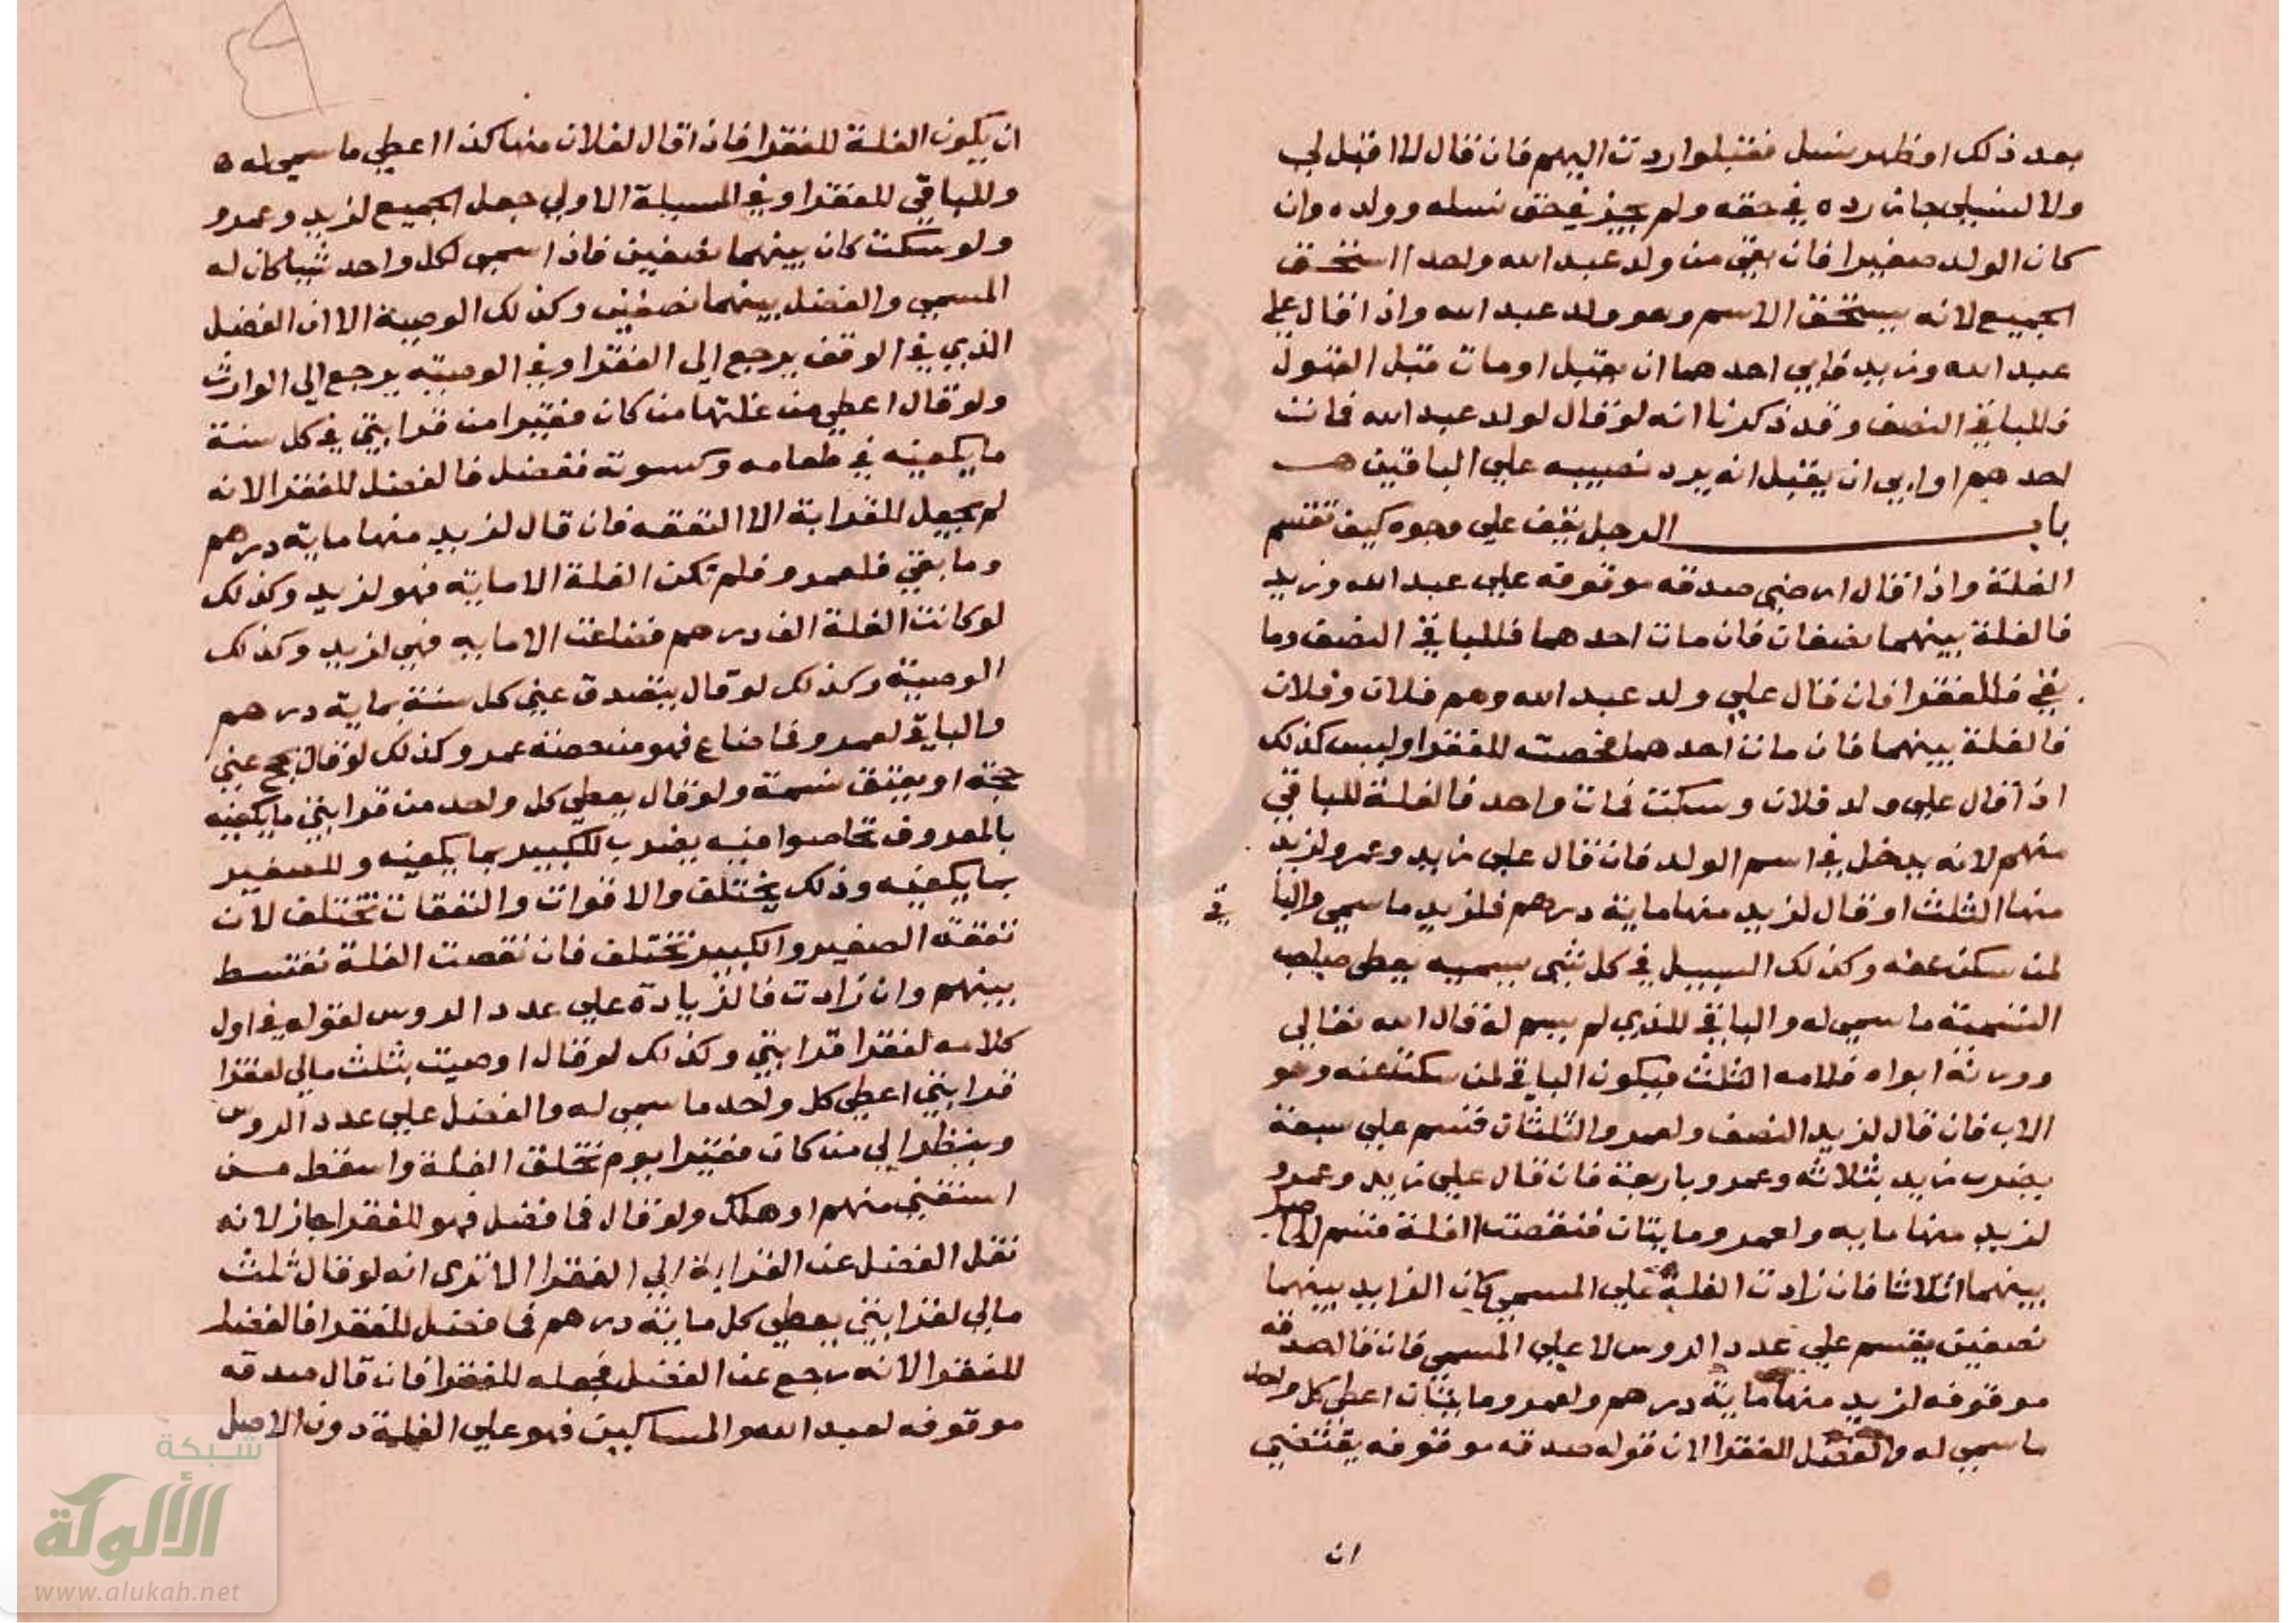 بعد ذلك او ظهر نسل فقبلوا ردت اليهم فان قال لا اقبل لي
ولا لنسلي جاز رده في حقه ولم يجز في حق نسله وولده وان
كان الولد صغيرا فان بقي من ولد عبد الله واحد استحق
الجميع لانه يستحق الاسم وهو ولد عبد الله واذا قال علي
عبد الله وزيد فابي احدهما ان يقبل او مات قبل القبول
فللباقي النصف وقد ذكرنا انه لو قال لولد عبد الله فمات
احدهم او ابي ان يقبل انه يرد نصيبه علي الباقين
باب الرجل يقف علي وجوه كيف تقسم
الغلة واذا قال ارضي صدقه موقوفه علي عبد الله وزيد
فالغلة بينهما نصفان فان مات احدهما فللباقي النصف وما
بقي فللفقرا فان قال علي ولد عبد الله وهم فلان وفلان
فالغلة بينهما فان مات احدهما فحصته للفقرا وليس كذلك
اذا قال علي ولد فلان وسكت فمات واحد فالغلة للباقي
منهم لانه يدخل في اسم الولد فان قال علي زيد وعمرو لزيد
منها الثلث او قال لزيد منها ماية درهم فلزيد ما سمي والباقي
لمن سكت عنه وكذلك السبيل في كل شي يسميه يعطى صاحب
التسمية ما سمي له والباقي للذي لم يسم له قال الله تعالي
وورثه ابواه فلامه الثلث فيكون الباقي لمن سكت عنه وهو
الاب فان قال لزيد النصف ولعمرو الثلثان قسم علي سبعة
يضرب زيد بثلاثه وعمرو باربعة فان قال علي زيد وعمرو
لزيد منها مايه ولعمرو مايتان فنقصت الغلة قسم الحاصل
بينهما اثلاثا فان زادت الغلة علي المسمي كان الزايد بينهما
نصفين يقسم علي عدد الروس لا علي المسمي فان قال صدقه
موقوفه لزيد منها ماية درهم ولعمرو مايتان اعطي كل واحد
ما سمي له والفضل للفقرا لان قوله صدقه موقوفه يقتضي
ان
٤٩
ان يكون الغلة للفقرا فاذا قال لفلان منها كذا اعطي ما سمي له ه
وللباقي للفقرا وفي المسيلة الاولي جعل الجميع لزيد وعمرو
ولو سكت كان بينهما نصفين فاذا سمي لكل واحد شيا كان له
المسمي والفضل بينهما نصفين وكذلك الوصية الا ان الفضل
الذي في الوقف يرجع الي الفقرا وفي الوصيه يرجع الي الوارث
ولو قال اعطي من غلتها من كان فقيرا من قرابتي في كل سنة
ما يكفيه في طعامه وكسوته ففضل فالفضل للفقرا لانه
لم يجعل للقرابة الا النفقه فان قال لزيد منها ماية درهم
وما بقي فلعمرو فلم تكن الغلة الا ماية فهو لزيد وكذلك
لو كانت الغلة الف درهم فضاعت الا مايه فهي لزيد وكذلك
الوصية وكذلك لو قال يتصدق عني كل سنة بماية درهم
والباقي لعمرو فما ضاع فهو من حصة عمرو وكذلك لو قال يحج عني
حجة او يعتق نسمة ولو قال يعطي كل واحد من قرابتي ما يكفيه
بالمعروف تحاصوا فيه يضرب للكبير بما يكفيه وللصغير
بما يكفيه وذلك يختلف والاقوات والنفقات تختلف لان
نفقة الصغير والكبير تختلف فان نقصت الغلة تقسط
بينهم وان زادت فالزيادة علي عدد الروس لقوله في اول
كلامه لفقرا قرابتي وكذلك لو قال اوصيت بثلث مالي لفقرا
قرابتي اعطي كل واحد ما سمي له والفضل علي عدد الروس
وينظر الي من كان فقيرا يوم تخلق الغلة واسقط من
استغني منهم او هلك ولو قال فما فضل فهو للفقرا جاز لانه
نقل الفضل عن القرابة الي الفقرا الا تري انه لو قال ثلث
مالي لقرابتي يعطي كل ماية درهم فما فضل للفقرا فالفضل
للفقرا لانه رجع عن الفضل فجعله للفقرا فان قال صدقه
موقوفه لعبد الله والمساكين فهو علي الغلة دون الاصل
شبكة
الألوكة
www.alukah.net